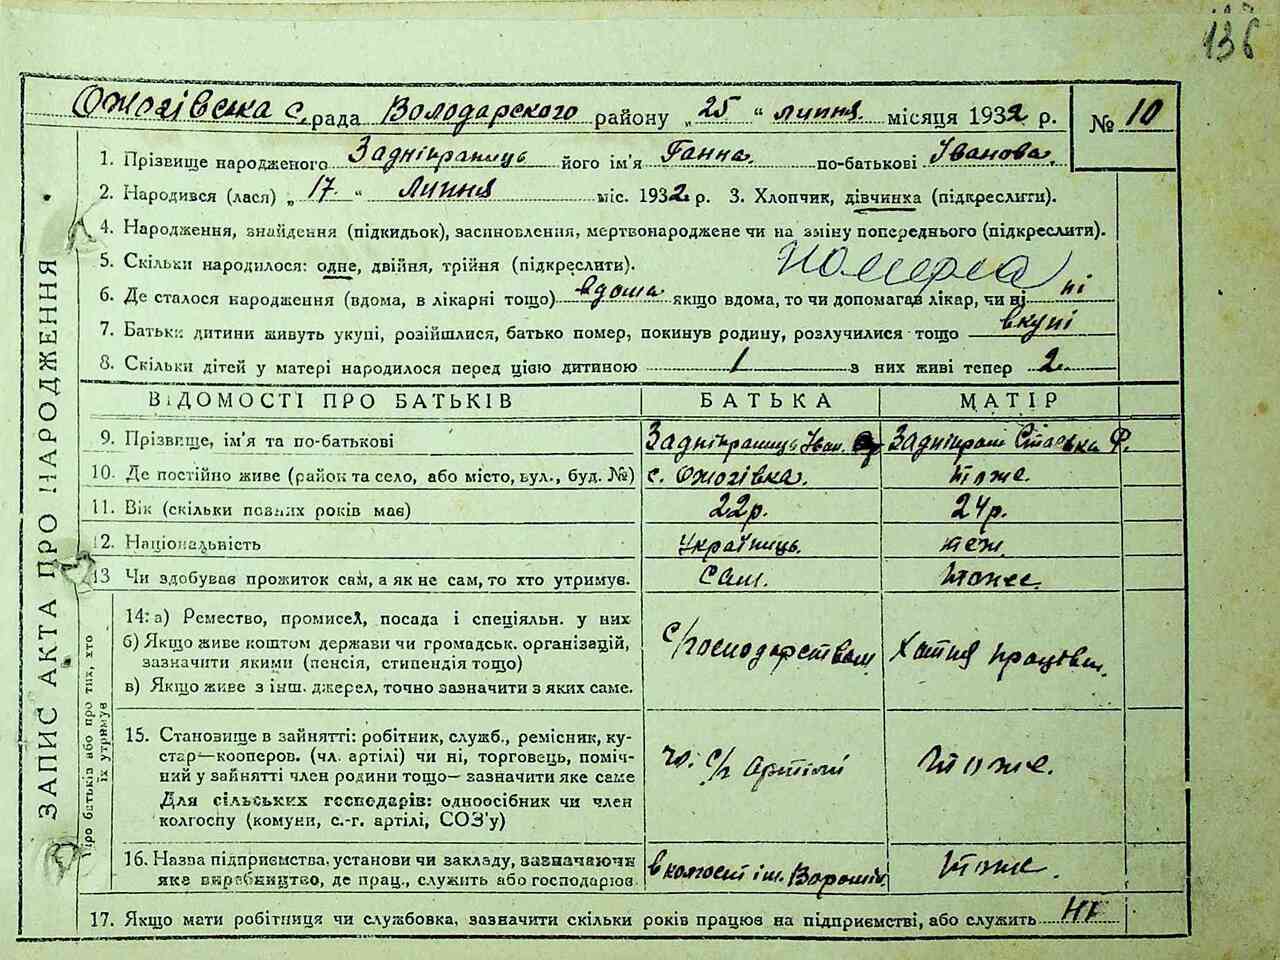 136
Ожогівська с. рада Володарского району „25“ липня місяця 1932 р. № 10
1. Прізвище народженого Задніпраниць його ім'я Ганна по-батькові Іванова
2. Народився (лася) „17“ липня міс. 1932 р. 3. Хлопчик, дівчинка (підкреслити).
4. Народження, знайдення (підкидьок), засиновлення, мертвонароджене чи на зміну попереднього (підкреслити).
5. Скільки народилося: одне, двійня, трійня (підкреслити). Померла
6. Де сталося народження (вдома, в лікарні тощо) вдома якщо вдома, то чи допомагав лікар, чи ні ні
7. Батьки дитини живуть укупі, розійшлися, батько помер, покинув родину, розлучилися тощо вкупі
8. Скільки дітей у матері народилося перед цією дитиною 1 з них живі тепер 2
ЗАПИС АКТА ПРО НАРОДЖЕННЯ
ВІДОМОСТІ ПРО БАТЬКІВ БАТЬКА МАТІР
9. Прізвище, ім'я та по-батькові Задніпраниць Іван. Задніпран Ф.
10. Де постійно живе (район та село, або місто, вул., буд. №) с. Ожогівка. тоже.
11. Вік (скільки повних років має) 22р. 24р.
12. Національність Українць. теж.
13 Чи здобував прожиток сам, а як не сам, то хто утримує. Сам. тоже.
Про батьків або про тих, хто їх утримує
14: а) Ремество, промисел, посада і спеціяльн. у них
б) Якщо живе коштом держави чи громадськ. організацій,
зазначити якими (пенсія, стипендія тощо) с/господарством Хатня працовн.
в) Якщо живе з інш. джерел, точно зазначити з яких саме.
15. Становище в зайнятті: робітник, служб., ремісник, ку-
стар—кооперов. (чл. артілі) чи ні, торговець, поміч-
ний у зайнятті член родини тощо— зазначити яке саме чл. с/г артілі тоже.
Для сільських господарів: одноосібник чи член
колгоспу (комуни, с.-г. артілі, СОЗ'у)
16. Назва підприємства, установи чи закладу, зазначаючи
яке виребництво, де прац., служить або господарює в колгоспі ім. Ворошіл тоже.
17. Якщо мати робітниця чи службовка, зазначити скільки років працює на підприємстві, або служить ні